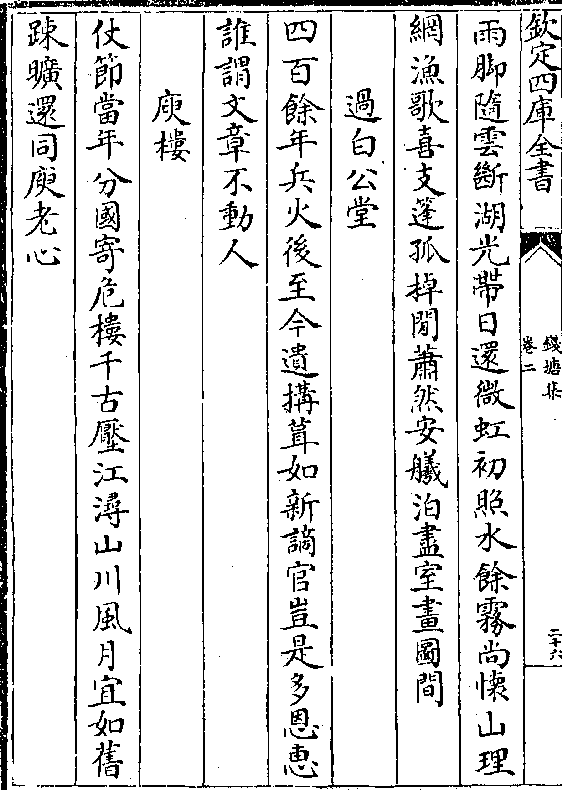 欽定四庫全書
錢塘集
卷二
二十六
雨脚隨雲斷湖光帶日還微虹初照水餘霧尚懷山理
網漁歌喜支蓬孤掉閒蕭然安艤泊盡室畫圖間
過白公堂
四百餘年兵火後至今遺搆葺如新謫官豈是多恩惠
誰謂文章不動人
庾樓
仗節當年分國寄危樓千古壓江潯山川風月宜如舊
踈曠還同庾老心